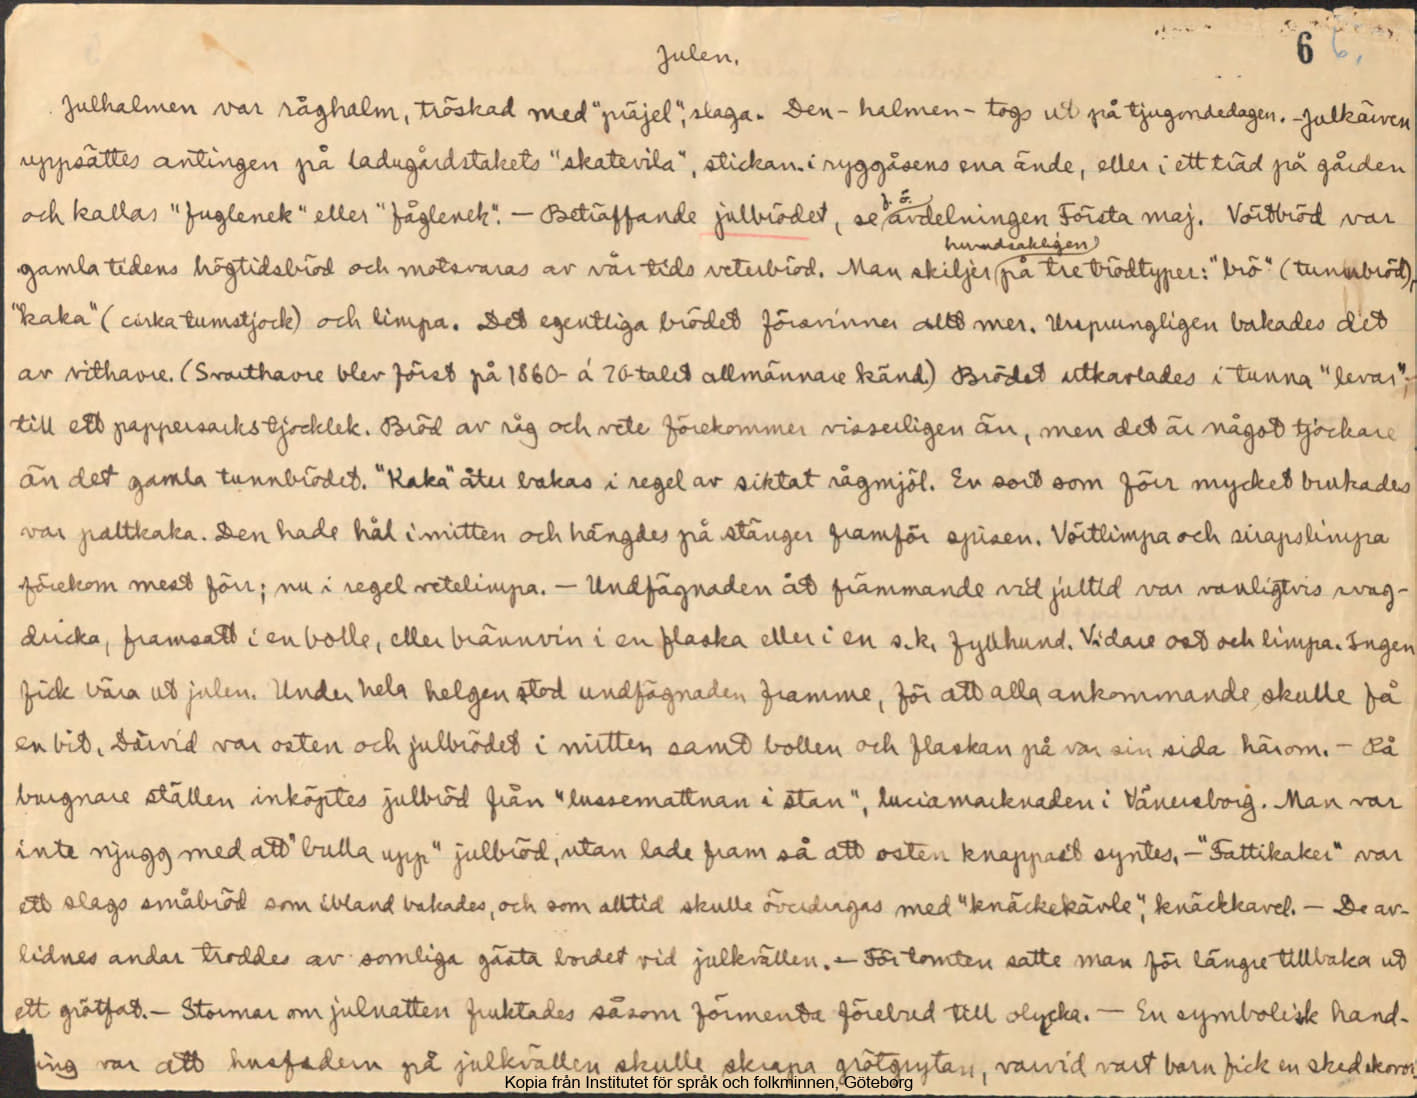 6 6.
Julen.
Julhalmen var råghalm, tröskad med "präjel", slaga. Den - halmen - togs ut på tjugondedagen. - Julkärven
uppsättes antingen på ladugårdstakets "skatevila", stickan i ryggåsens ena ände, eller i ett träd på gården
och kallas "fuglenek" eller "fåglenek". - Beträffande julbrödet, se avdelningen Första maj. Vörtbröd var
huvudsakligen
gamla tidens högtidsbröd och motsvaras av vår tids vetebröd. Man skiljer på tre brödtyper: "brö" (tunnbröd),
"kaka" (cirka tumstjock) och limpa. Det egentliga brödet försvinner allt mer. Ursprungligen bakades det
av vithavre. (Svarthavre blev först på 1860- á 70-talet allmännare känd.) Brödet utkavlades i tunna "levar",
till ett pappersarks tjocklek. Bröd av råg och vete förekommer visserligen än, men det är något tjockare
än det gamla tunnbrödet. "Kaka" åter bakas i regel av siktat rågmjöl. En sort som förr mycket brukades
var paltkaka. Den hade hål i mitten och hängdes på stänger framför spisen. Vörtlimpa och sirapslimpa
förekom mest förr; nu i regel vetelimpa. - Undfägnaden åt främmande vid jultid var vanligtvis svag-
dricka, framsatt i en bolle, eller brännvin i en flaska eller i en s.k. fyllhund. Vidare ost och limpa. Ingen
fick bära ut julen. Under hela helgen stod undfägnaden framme, för att alla ankommande skulle få
en bit. Därvid var osten och julbrödet i mitten samt bollen och flaskan på var sin sida härom. - På
burgnare ställen inköptes julbröd från "lussemattnan i stan", luciamarknaden i Vänersborg. Man var
inte njugg med att "bulla upp" julbröd, utan lade fram så att osten knappast syntes. - "Fattikaker" var
ett slags småbröd som ibland bakades, och som alltid skulle överdragas med "knäckekävle", knäckkavel. - De av-
lidnes andar troddes av somliga gästa bordet vid julkvällen. - För tomten satte man för längre tillbaka ut
ett grötfat. - Stormar om julnatten fruktades såsom förmenta förebud till olycka. - En symbolisk hand-
ing var att husfadern på julkvällen skulle skrapa grötgrytan, varvid vart barn fick en sked
Kopia från Institutet för språk och folkminnen, Göteborg